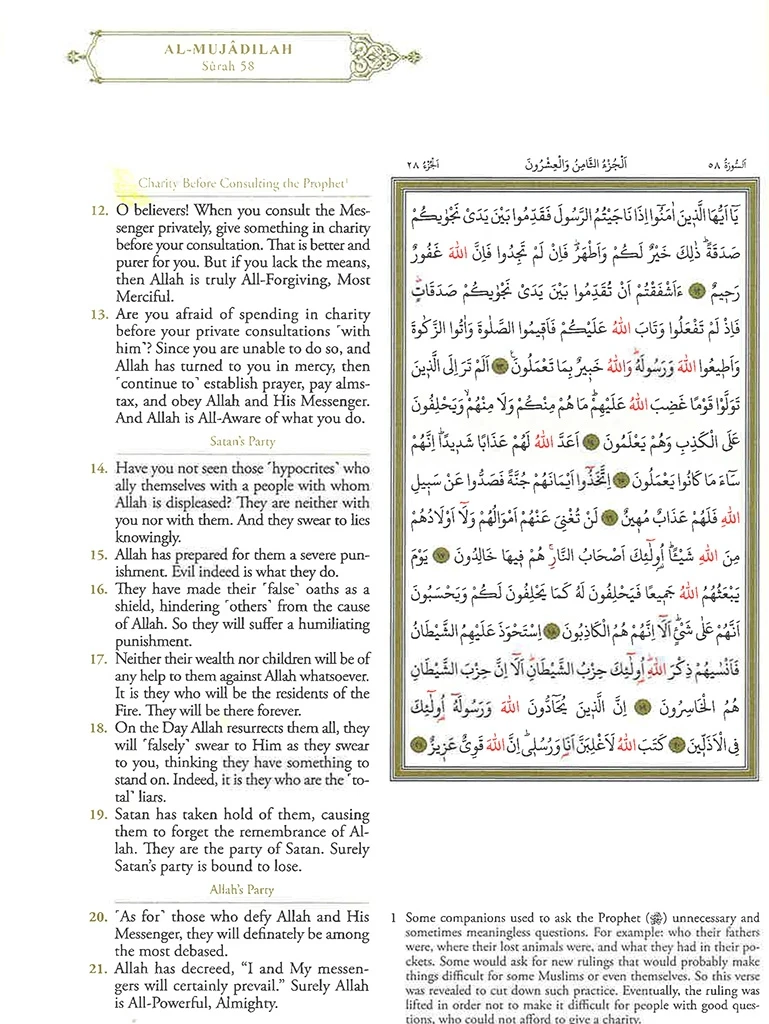 AL-MUJÂDILAH
Sûrah 58
Charity Before Consulting the Prophet¹
12. O believers! When you consult the Mes-
senger privately, give something in charity
before your consultation. That is better and
purer for you. But if you lack the means,
then Allah is truly All-Forgiving, Most
Merciful.
13. Are you afraid of spending in charity
before your private consultations ˹with
him˺? Since you are unable to do so, and
Allah has turned to you in mercy, then
˹continue to˺ establish prayer, pay alms-
tax, and obey Allah and His Messenger.
And Allah is All-Aware of what you do.
Satan's Party
14. Have you not seen those ˹hypocrites˺ who
ally themselves with a people with whom
Allah is displeased? They are neither with
you nor with them. And they swear to lies
knowingly.
15. Allah has prepared for them a severe pun-
ishment. Evil indeed is what they do.
16. They have made their ˹false˺ oaths as a
shield, hindering ˹others˺ from the cause
of Allah. So they will suffer a humiliating
punishment.
17. Neither their wealth nor children will be of
any help to them against Allah whatsoever.
It is they who will be the residents of the
Fire. They will be there forever.
18. On the Day Allah resurrects them all, they
will ˹falsely˺ swear to Him as they swear
to you, thinking they have something to
stand on. Indeed, it is they who are the ˹to-
tal˺ liars.
19. Satan has taken hold of them, causing
them to forget the remembrance of Al-
lah. They are the party of Satan. Surely
Satan's party is bound to lose.
Allah's Party
20. ˹As for˺ those who defy Allah and His
Messenger, they will definately be among
the most debased.
21. Allah has decreed, “I and My messen-
gers will certainly prevail.” Surely Allah
is All-Powerful, Almighty.
اَلسُّورَةُ ٥٨ اَلْجُزْءُ الثَّامِنُ وَالْعِشْرُونَ اَلْجُزْءُ ٢٨
يَٓا اَيُّهَا الَّذ۪ينَ اٰمَنُٓوا اِذَا نَاجَيْتُمُ الرَّسُولَ فَقَدِّمُوا بَيْنَ يَدَيْ نَجْوٰيكُمْ
صَدَقَةًۜ ذٰلِكَ خَيْرٌ لَكُمْ وَاَطْهَرُۜ فَاِنْ لَمْ تَجِدُوا فَاِنَّ اللّٰهَ غَفُورٌ
رَح۪يمٌ ﴿١٢﴾ ءَاَشْفَقْتُمْ اَنْ تُقَدِّمُوا بَيْنَ يَدَيْ نَجْوٰيكُمْ صَدَقَاتٍۜ
فَاِذْ لَمْ تَفْعَلُوا وَتَابَ اللّٰهُ عَلَيْكُمْ فَاَق۪يمُوا الصَّلٰوةَ وَاٰتُوا الزَّكٰوةَ
وَاَط۪يعُوا اللّٰهَ وَرَسُولَهُۜ وَاللّٰهُ خَب۪يرٌ بِمَا تَعْمَلُونَ۟ ﴿١٣﴾ اَلَمْ تَرَ اِلَى الَّذ۪ينَ
تَوَلَّوْا قَوْمًا غَضِبَ اللّٰهُ عَلَيْهِمْۜ مَا هُمْ مِنْكُمْ وَلَا مِنْهُمْۙ وَيَحْلِفُونَ
عَلَى الْكَذِبِ وَهُمْ يَعْلَمُونَ ﴿١٤﴾ اَعَدَّ اللّٰهُ لَهُمْ عَذَابًا شَد۪يدًاۜ اِنَّهُمْ
سَٓاءَ مَا كَانُوا يَعْمَلُونَ ﴿١٥﴾ اِتَّخَذُٓوا اَيْمَانَهُمْ جُنَّةً فَصَدُّوا عَنْ سَب۪يلِ
اللّٰهِ فَلَهُمْ عَذَابٌ مُه۪ينٌ ﴿١٦﴾ لَنْ تُغْنِيَ عَنْهُمْ اَمْوَالُهُمْ وَلَٓا اَوْلَادُهُمْ
مِنَ اللّٰهِ شَيْـًٔاۜ اُو۬لٰٓئِكَ اَصْحَابُ النَّارِۜ هُمْ ف۪يهَا خَالِدُونَ ﴿١٧﴾ يَوْمَ
يَبْعَثُهُمُ اللّٰهُ جَم۪يعًا فَيَحْلِفُونَ لَهُ كَمَا يَحْلِفُونَ لَكُمْ وَيَحْسَبُونَ
اَنَّهُمْ عَلٰى شَيْءٍۜ اَلَٓا اِنَّهُمْ هُمُ الْكَاذِبُونَ ﴿١٨﴾ اِسْتَحْوَذَ عَلَيْهِمُ الشَّيْطَانُ
فَاَنْسٰيهُمْ ذِكْرَ اللّٰهِۜ اُو۬لٰٓئِكَ حِزْبُ الشَّيْطَانِۜ اَلَٓا اِنَّ حِزْبَ الشَّيْطَانِ
هُمُ الْخَاسِرُونَ ﴿١٩﴾ اِنَّ الَّذ۪ينَ يُحَٓادُّونَ اللّٰهَ وَرَسُولَهُٓ اُو۬لٰٓئِكَ
فِي الْاَذَلّ۪ينَ ﴿٢٠﴾ كَتَبَ اللّٰهُ لَاَغْلِبَنَّ اَنَا۬ وَرُسُل۪يۜ اِنَّ اللّٰهَ قَوِيٌّ عَز۪يزٌ ﴿٢١﴾
1 Some companions used to ask the Prophet (ﷺ) unnecessary and
sometimes meaningless questions. For example: who their fathers
were, where their lost animals were, and what they had in their po-
ckets. Some would ask for new rulings that would probably make
things difficult for some Muslims or even themselves. So this verse
was revealed to cut down such practice. Eventually, the ruling was
lifted in order not to make it difficult for people with good ques-
tions, who could not afford to give a charity.